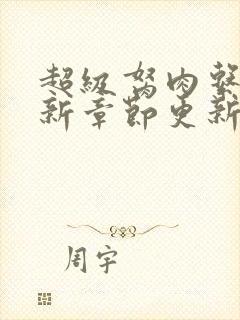 超級胬肉
新章節更新
周宇